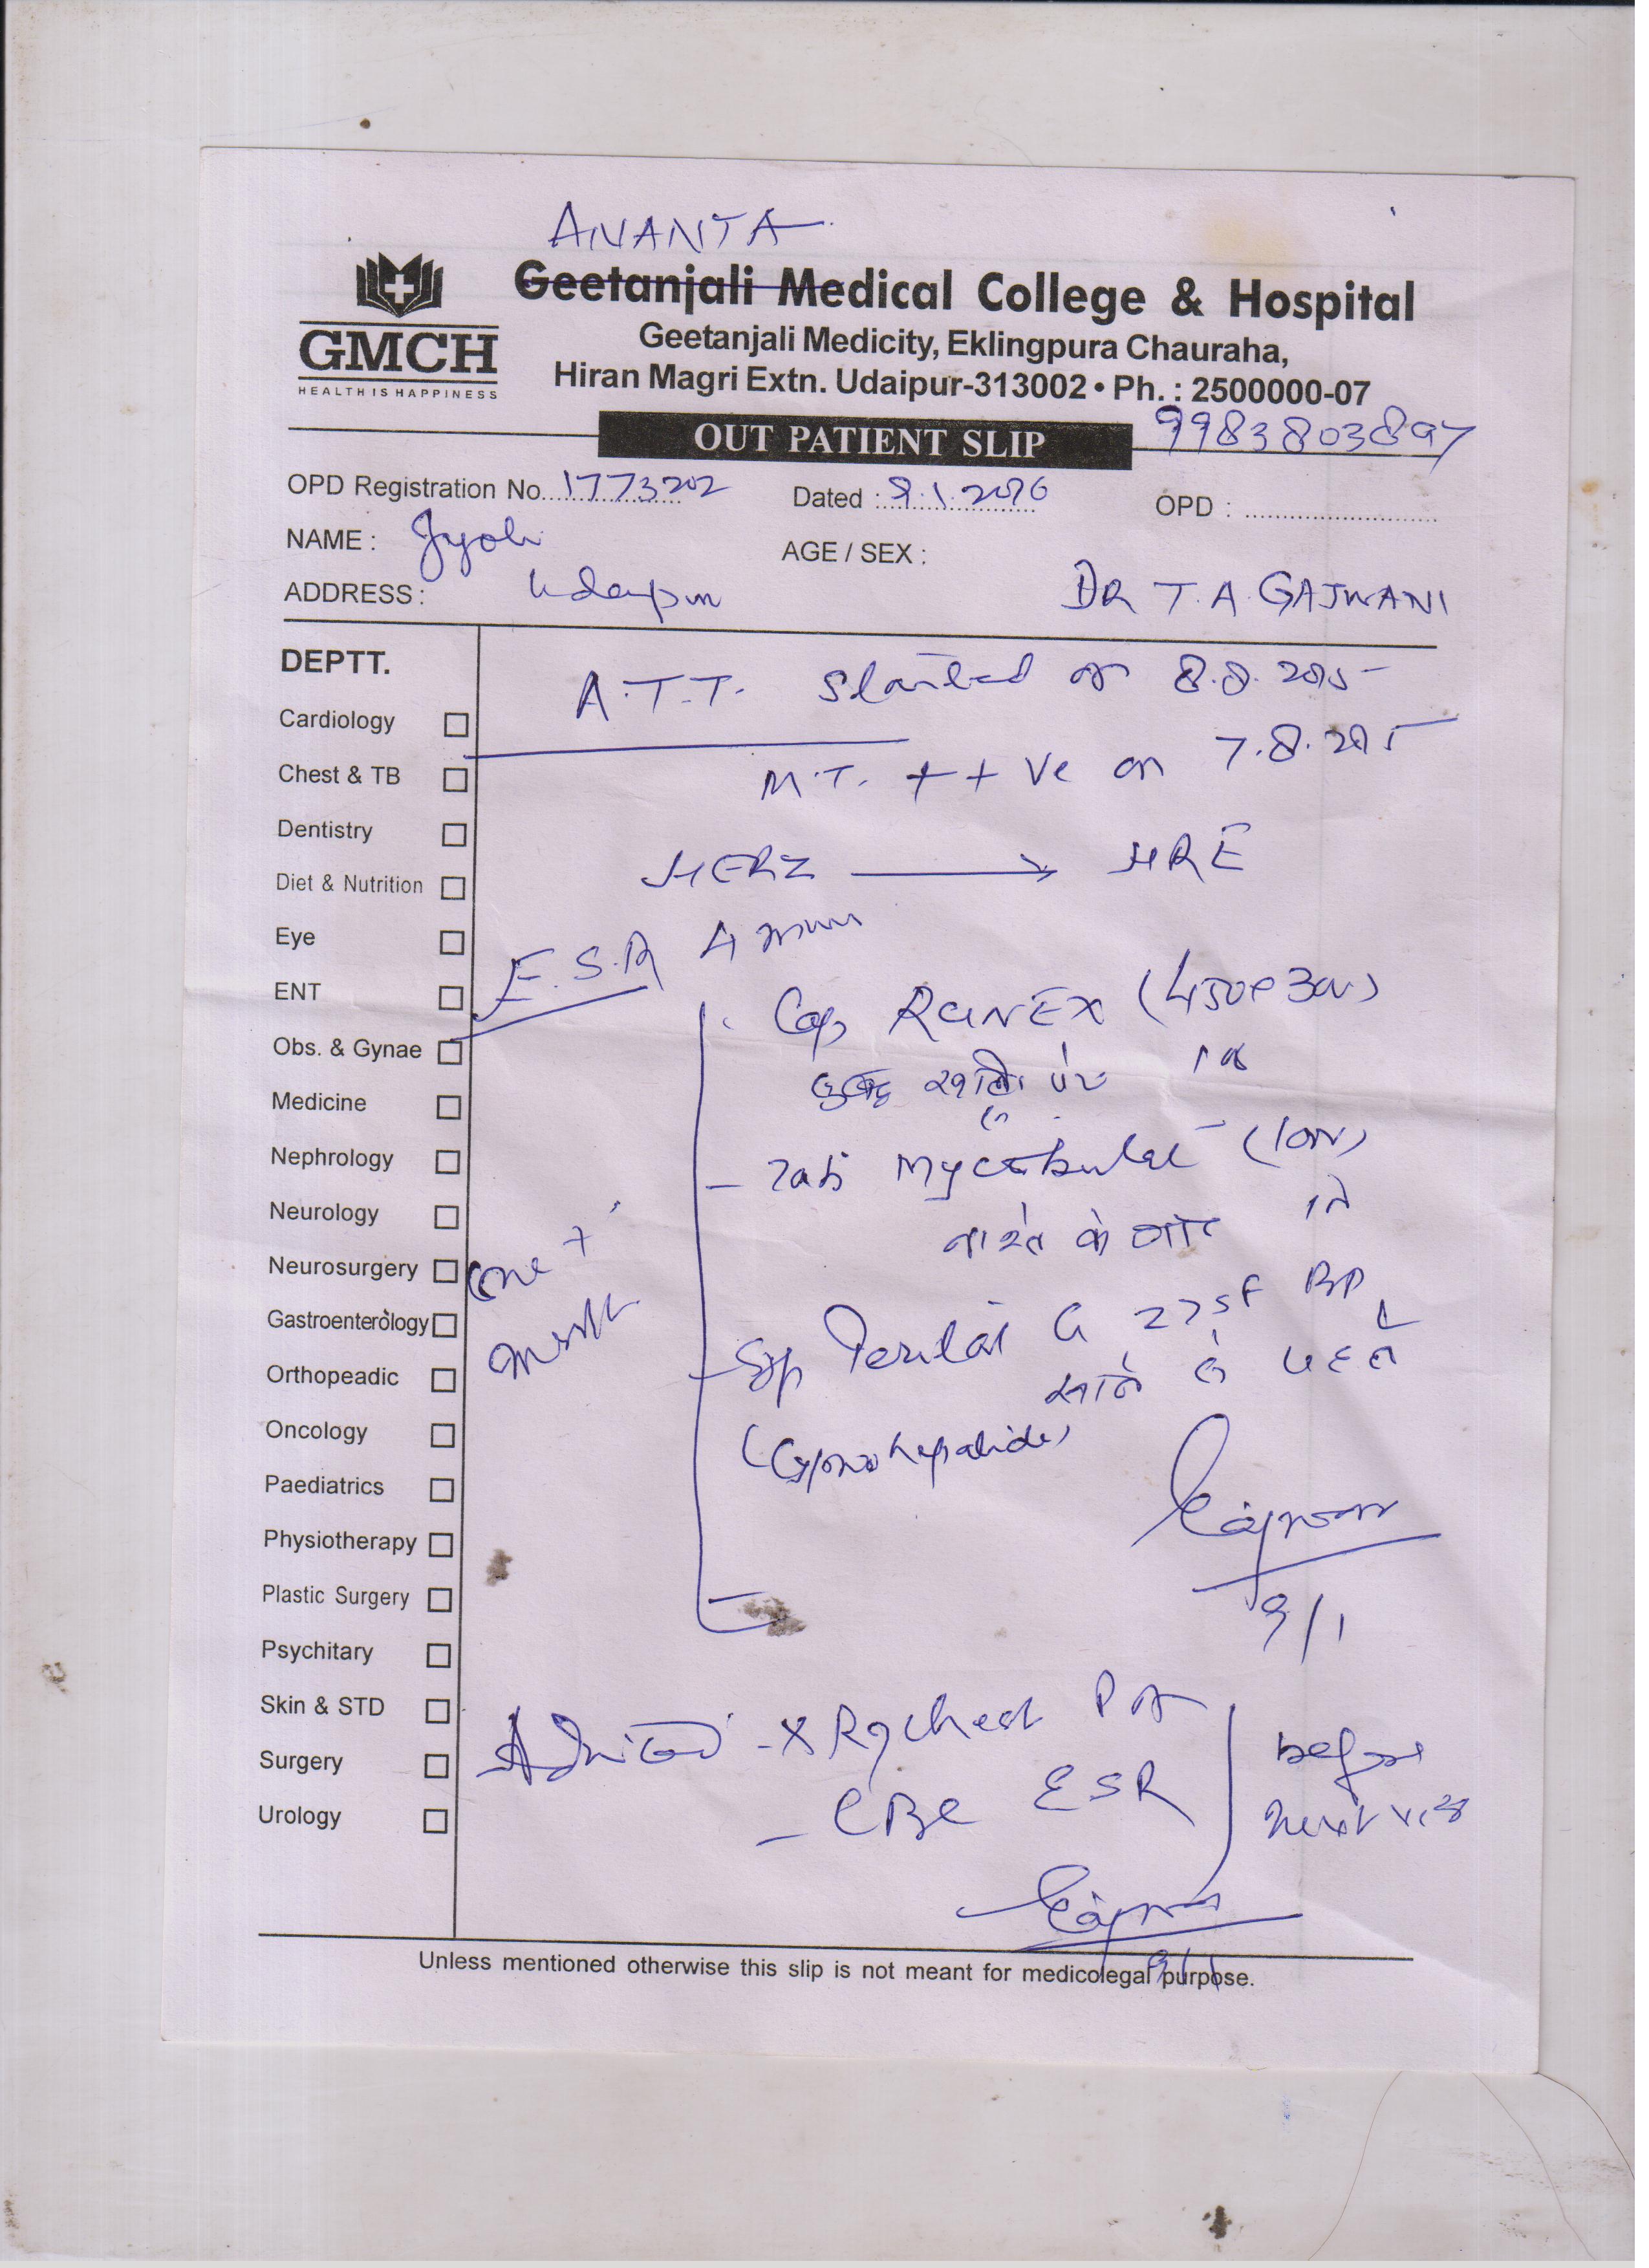 ANANTA
Geetanjali Medical College & Hospital
GMCH
HEALTH IS HAPPINESS
Geetanjali Medicity, Eklingpura Chauraha,
Hiran Magri Extn. Udaipur-313002 • Ph. : 2500000-07
OUT PATIENT SLIP
9983803897
OPD Registration No. 1773202 Dated : 9.1.2016 OPD :
NAME : Jyoti AGE / SEX :
ADDRESS : Udaipur DR T. A. GAJWANI
DEPTT.
A.T.T. Started on 8.8.2015
Cardiology
M.T. ++ Ve on 7.8.2015
Chest & TB
Dentistry
HERZ → HRE
Diet & Nutrition
Eye
E.S.R 4 mm
ENT
Cap RcinEX (450 300)
Obs. & Gynae
खाली पेट
Medicine
Nephrology
- Tab Mycobutol
Neurology
नाश्ते के बाद
Neurosurgery
One
Gastroenterology
month
Orthopeadic
खाने से पहले
Oncology
Paediatrics
Physiotherapy
Plastic Surgery
9/1
Psychitary
Skin & STD
Advised - X Ray chest PA
Surgery
- CBC ESR
before
next visit
Urology
9/1
Unless mentioned otherwise this slip is not meant for medicolegal purpose.